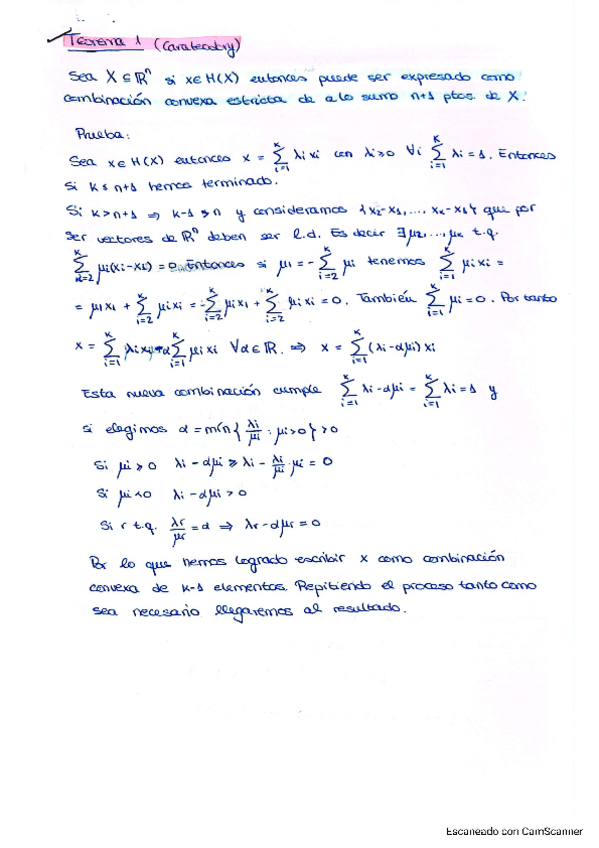 Teorema 1 (Carateodory)
Sea X ⊆ ℝⁿ si x∈H(X) entonces puede ser expresado como
combinación convexa estricta de a lo sumo n+1 ptos. de X.
Prueba:
Sea x∈H(X) entonces x = ∑_{i=1}^{k} λi xi con λi>0 ∀i ∑_{i=1}^{k} λi = 1. Entonces
Si k ≤ n+1 hemos terminado.
Si k>n+1 ⇒ k-1 > n y consideramos {x2-x1, ..., xk-x1} que por
ser vectores de ℝⁿ deben ser l.d. Es decir ∃μ2, ..., μk t.q.
∑_{i=2}^{k} μi(xi-x1) = 0. Entonces si μ1 = -∑_{i=2}^{k} μi tenemos ∑_{i=1}^{k} μi xi =
= μ1x1 + ∑_{i=2}^{k} μi xi = -∑_{i=2}^{k} μi x1 + ∑_{i=2}^{k} μi xi = 0. También ∑_{i=1}^{k} μi = 0. Por tanto
x = ∑_{i=1}^{k} λi xi - α ∑_{i=1}^{k} μi xi ∀α∈ℝ. ⇒ x = ∑_{i=1}^{k} (λi-αμi) xi
Esta nueva combinación cumple ∑_{i=1}^{k} λi-αμi = ∑_{i=1}^{k} λi = 1 y
si elegimos α = mín{ λi/μi : μi>0 } > 0
Si μi > 0 λi - αμi ≥ λi - λi/μi · μi = 0
Si μi < 0 λi - αμi > 0
Si r t.q. λr/μr = α ⇒ λr - αμr = 0
Por lo que hemos logrado escribir x como combinación
convexa de k-1 elementos. Repitiendo el proceso tanto como
sea necesario llegaremos al resultado.
Escaneado con CamScanner